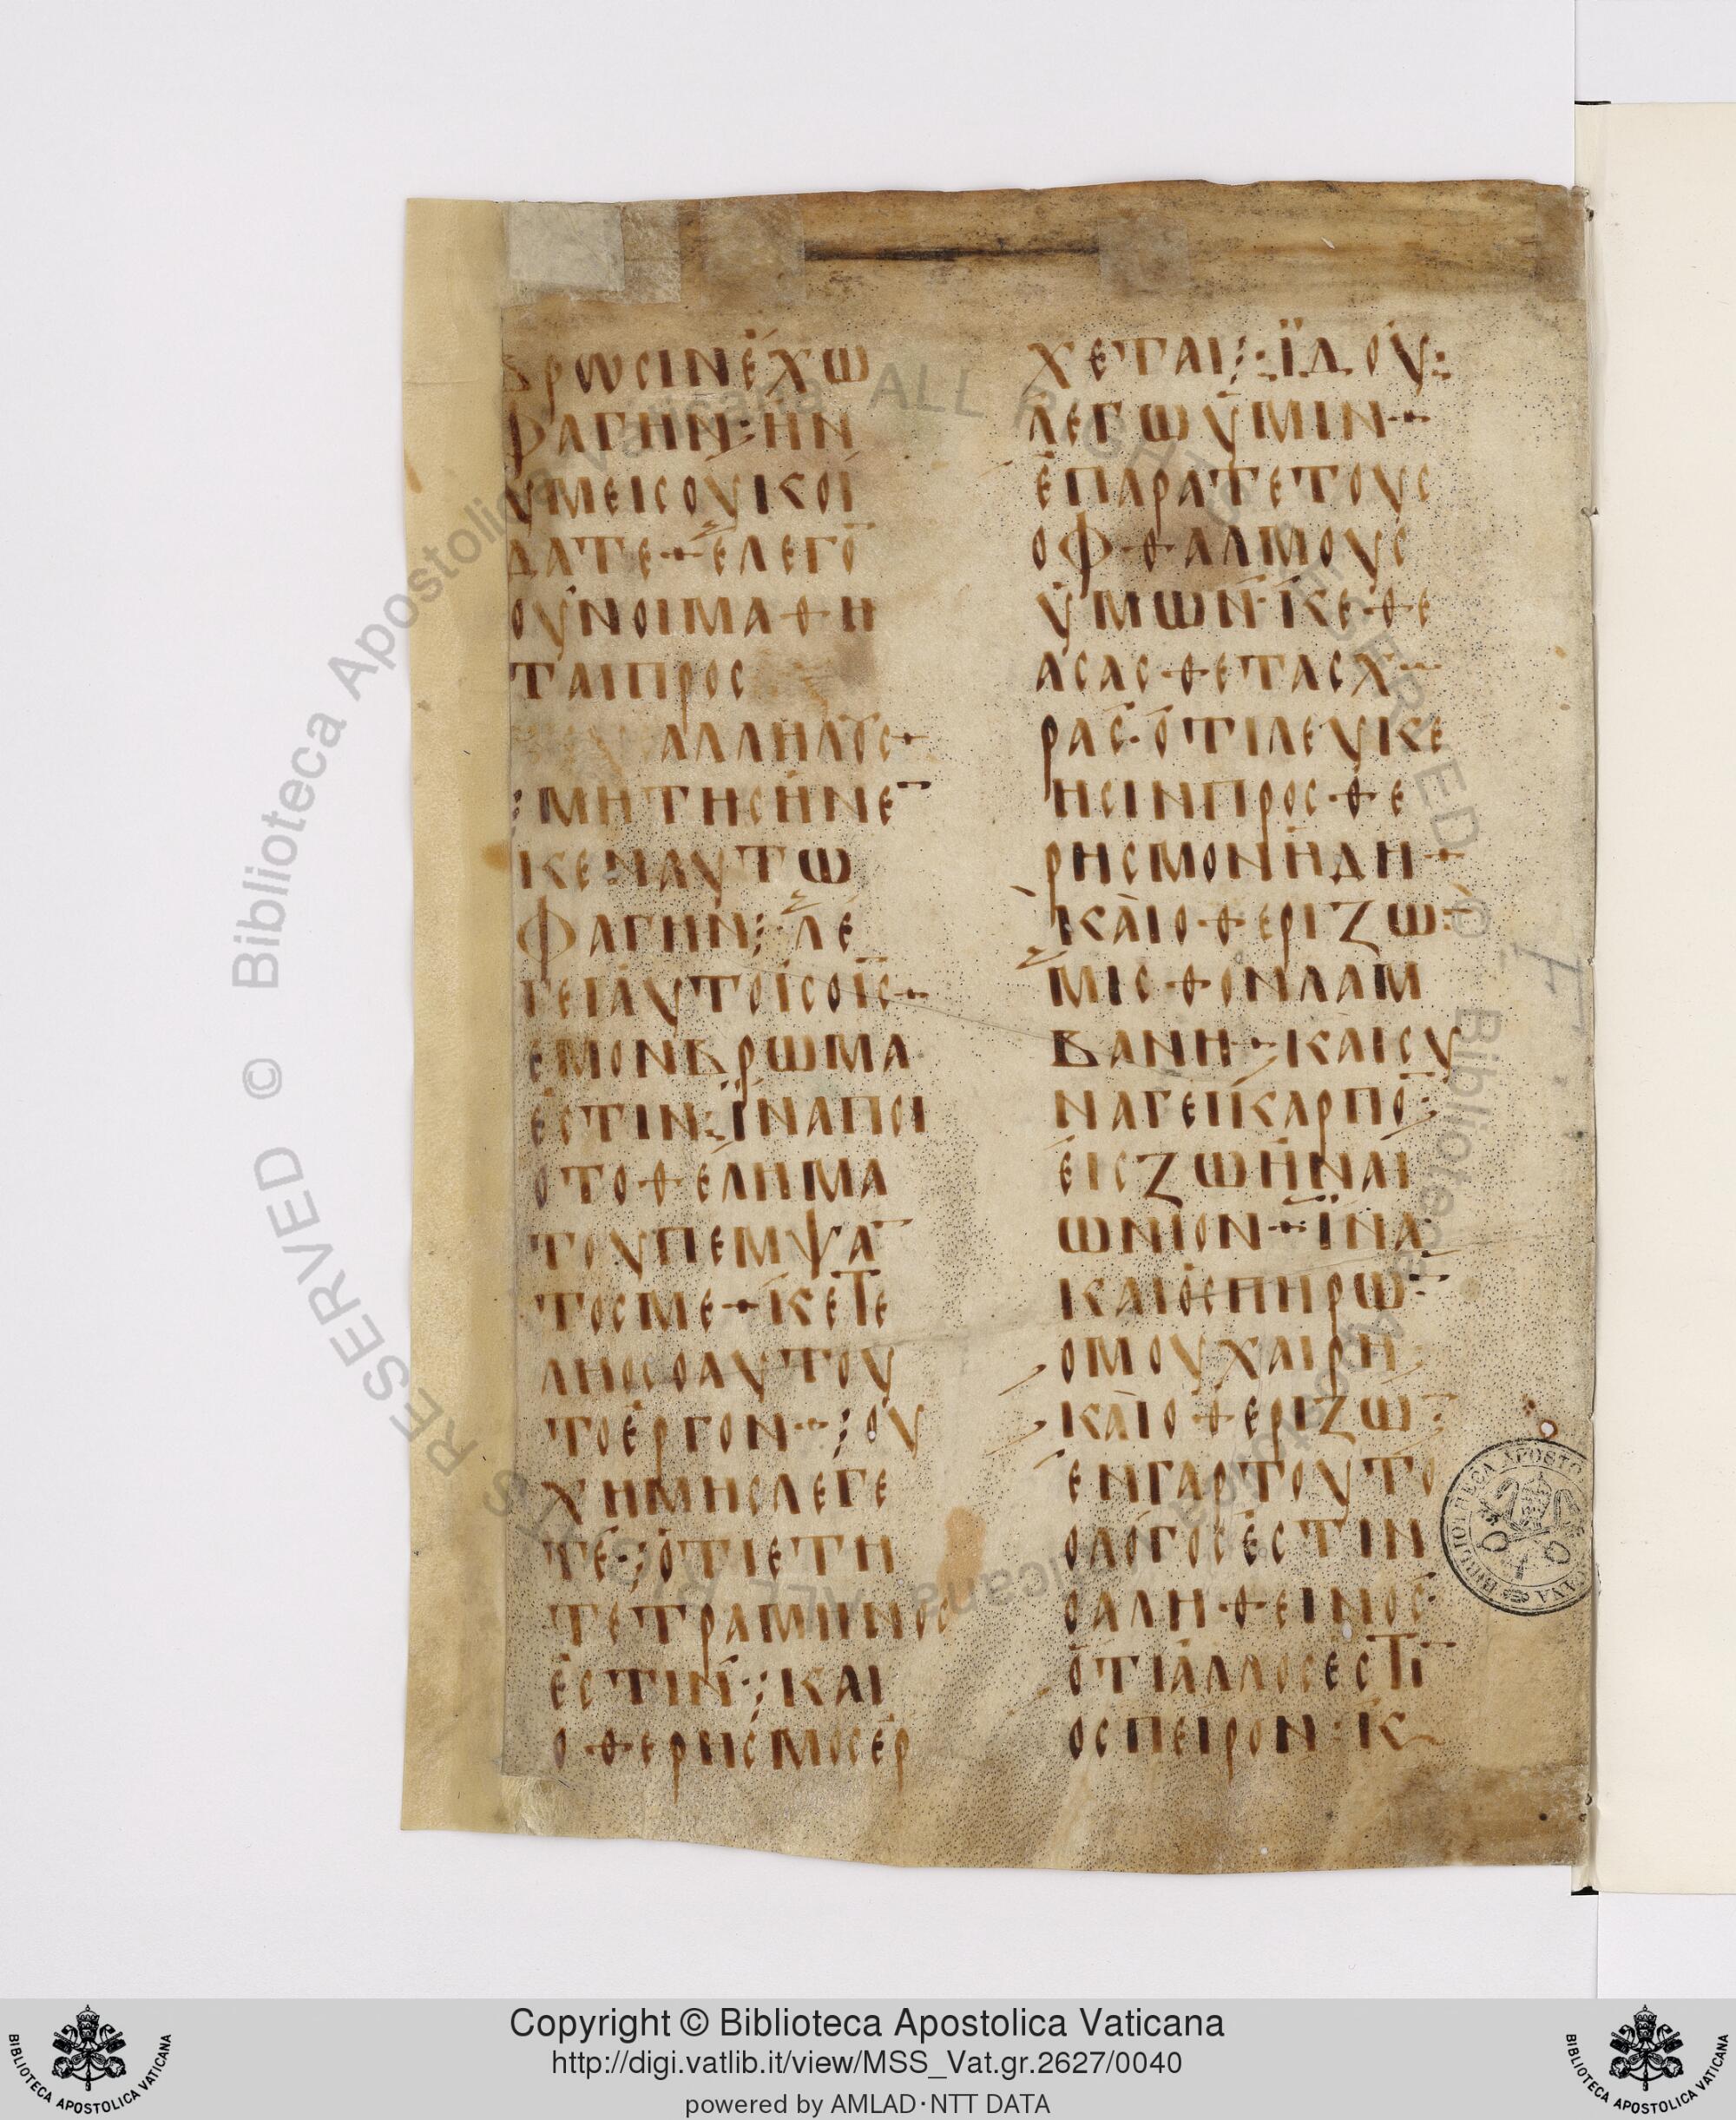 ΒΡΩCΙΝΕΧΩ
ΦΑΓΗΝ:ΗΝ
ΥΜΕΙCΟΥΚΟΙ
ΔΑΤΕ+ΕΛΕΓΟ̅
ΟΥΝΟΙΜΑΘΗ
ΤΑΙΠΡΟC
ΑΛΛΗΛΟΥC+
:ΜΗΤΗCΗΝΕ̅
ΚΕΝΑΥΤΩ
ΦΑΓΗΝ:ΛΕ
ΓΕΙΑΥΤΟΙCΟΙ̅C̅+
ΕΜΟΝΒΡΩΜΑ
ΕCΤΙΝ:ΪΝΑΠΟΙ
ΟΤΟΘΕΛΗΜΑ
ΤΟΥΠΕΜΨΑ̅
ΤΟCΜΕ+ΚΕΤΕ
ΛΗΟCΟΑΥΤΟΥ
ΤΟΕΡΓΟΝ+:ΟΥ
ΧΗΜΗCΛΕΓΕ
ΤΕ:ΟΤΙΕΤΗ
ΤΕΤΡΑΜΗΝΟC
ΕCΤΙΝ:ΚΑΙ
ΟΘΕΡΗCΜΟCΕΡ
ΧΕΤΑΙ:ΪΔΟΥ:
ΛΕΓΩΥΜΙΝ+
ΕΠΑΡΑΤΕΤΟΥC
ΟΦΘΑΛΜΟΥC
ΥΜΩΝ·ΚΕΘΕ
ΑCΑCΘΕΤΑCΧ
ΡΑC·ΟΤΙΛΕΥΚΕ
ΗCΙΝΠΡΟCΘΕ
ΡΗCΜΟΝΗΔΗ+
ΚΑΙΟΘΕΡΙΖΩ+
ΜΙCΘΟΝΛΑΜ
ΒΑΝΗ:ΚΑΙCΥ
ΝΑΓΕΙΚΑΡΠΟ̅:
ΕΙCΖΩΗΝΑΙ
ΩΝΙΟΝ+ΪΝΑ
ΚΑΙΟCΠΗΡΩ̅
ΟΜΟΥΧΑΙΡΗ
ΚΑΙΟΘΕΡΙΖΩ
ΕΝΓΑΡΤΟΥΤΟ
ΟΛΟΓΟCΕCΤΙΝ
ΟΑΛΗΘΕΙΝΟC
ΟΤΙΑΛΛΟCΕCΤΙ̅
ΟCΠΕΙΡΟΝ:Κ
BIBLIOTECA APOSTOLICA VATICANA
Copyright © Biblioteca Apostolica Vaticana
http://digi.vatlib.it/view/MSS_Vat.gr.2627/0040
powered by AMLAD·NTT DATA